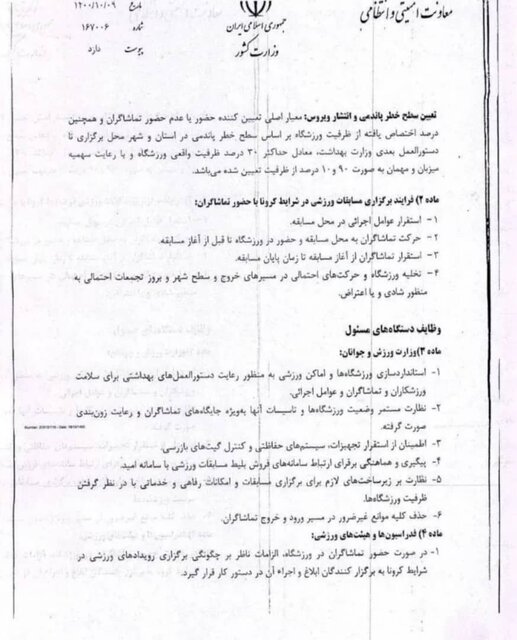 تاریخ ۱۴۰۰/۱۰/۰۹
شماره ۱۶۷۰۰۶
پیوست دارد
جمهوری اسلامی ایران
وزارت کشور
معاونت امنیتی و انتظامی
تعیین سطح خطر پاندمی و انتشار ویروس: معیار اصلی تعیین کننده حضور یا عدم حضور تماشاگران و همچنین
درصد اختصاص یافته از ظرفیت ورزشگاه بر اساس سطح خطر پاندمی در استان و شهر محل برگزاری تا
دستورالعمل بعدی وزارت بهداشت، معادل حداکثر ۳۰ درصد ظرفیت واقعی ورزشگاه و با رعایت سهمیه
میزبان و مهمان به صورت ۹۰ و ۱۰ درصد از ظرفیت تعیین شده می‌باشد.
ماده ۲) فرایند برگزاری مسابقات ورزشی در شرایط کرونا با حضور تماشاگران:
۱- استقرار عوامل اجرائی در محل مسابقه.
۲- حرکت تماشاگران به محل مسابقه و حضور در ورزشگاه تا قبل از آغاز مسابقه.
۳- استقرار تماشاگران از آغاز مسابقه تا زمان پایان مسابقه.
۴- تخلیه ورزشگاه و حرکت‌های احتمالی در مسیرهای خروج و سطح شهر و بروز تجمعات احتمالی به
منظور شادی و یا اعتراض.
وظایف دستگاه‌های مسئول
ماده ۳) وزارت ورزش و جوانان:
۱- استانداردسازی ورزشگاه‌ها و اماکن ورزشی به منظور رعایت دستورالعمل‌های بهداشتی برای سلامت
ورزشکاران و تماشاگران و عوامل اجرائی.
۲- نظارت مستمر وضعیت ورزشگاه‌ها و تاسیسات آنها به‌ویژه جایگاه‌های تماشاگران و رعایت زون‌بندی
صورت گرفته.
۳- اطمینان از استقرار تجهیزات، سیستم‌های حفاظتی و کنترل گیت‌های بازرسی.
۴- پیگیری و هماهنگی برقرای ارتباط سامانه‌های فروش بلیط مسابقات ورزشی با سامانه امید.
۵- نظارت بر زیرساخت‌های لازم برای برگزاری مسابقات و امکانات رفاهی و خدماتی با در نظر گرفتن
ظرفیت ورزشگاه‌ها.
۶- حذف کلیه موانع غیرضرور در مسیر ورود و خروج تماشاگران.
ماده ۴) فدراسیون‌ها و هیئت‌های ورزشی:
۱- در صورت حضور تماشاگران در ورزشگاه، الزامات ناظر بر چگونگی برگزاری رویدادهای ورزشی در
شرایط کرونا به برگزار کنندگان ابلاغ و اجراء آن در دستور کار قرار گیرد.